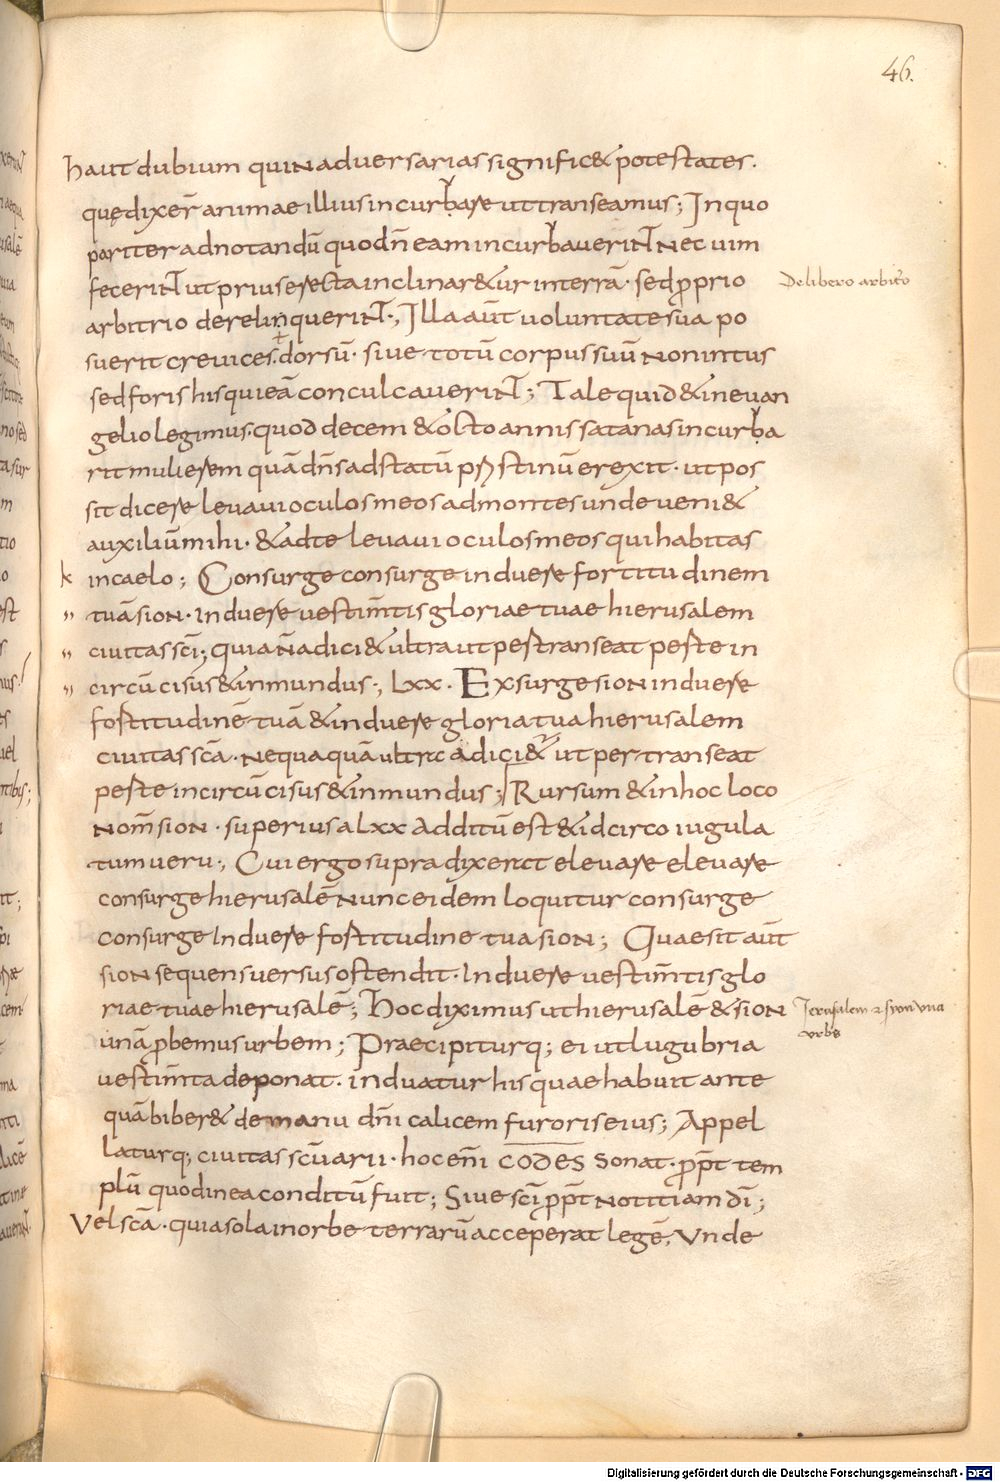 46.
haut dubium quin adversarias signific& potestates.
quę dixer̄ animae illius incurbare ut transeamus; In quo
pariter adnotandū quod n̄ eam incurbaverint nec uim
fecerint ut prius erecta inclinar&ur in terrā· sed proprio
De libero arbitrio
arbitrio derelinquerint·; Illa aūt uoluntate sua po
suerit crevices. dorsū· siue totū corpus suū non intus
sed foris his qui eā conculcaverint; Tale quid & in euan
gelio legimus· quod decem & octo annis satanas incurba
rit mulierem quā dn̄s ad statū pristinū erexit· ut pos
sit dicere levavi oculos meos ad montes unde veni&
auxiliū mihi· & ad te levavi oculos meos qui habitas
in caelo; Consurge consurge induere fortitudinem
tuā sion· induere vestim̄tis gloriae tuae hierusalem
civitas sc̄i; quia n̄ adici& ultra ut pertranseat per te in
circūcisus & inmundus·; Lxx· Exsurge sion induere
fortitudinē tuā & induere gloria tua hierusalem
civitas sc̄a· nequaquā ultra adici& ut per transeat
per te incircūcisus & inmundus; Rursum & in hoc loco
nom̄ sion· superius a Lxx additū est & idcirco iugula
tum veru·; Cui ergo supra dixerat elevare elevare
consurge hierusalē nunc eidem loquitur consurge
consurge Induere fortitudine tua sion; Quae sit aūt
sion sequens versus ostendit· Induere vestim̄tis glo
riae tuae hierusalē; Hoc diximus ut hierusalē & sion
Jerusalem & syon una
urbs
unā probemus urbem; Praecipiturq; ei ut lugubria
vestim̄ta deponat· induatur his quae habuit ante
quā biber& de manu dn̄i calicem furoris eius; Appel
laturq; civitas sc̄uarii· hoc enī codes sonat· propt̄ tem
plū quod in ea conditū fuit; Sive sc̄i propt̄ notitiam dī;
Vel sc̄a· quia sola in orbe terrarū acceperat legē, Vnde
Digitalisierung gefördert durch die Deutsche Forschungsgemeinschaft - DFG